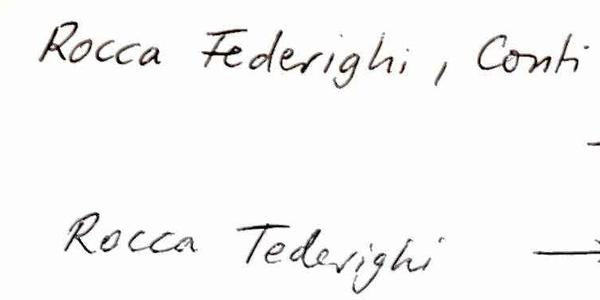 Rocca Federighi, Conti
Rocca Tederighi →